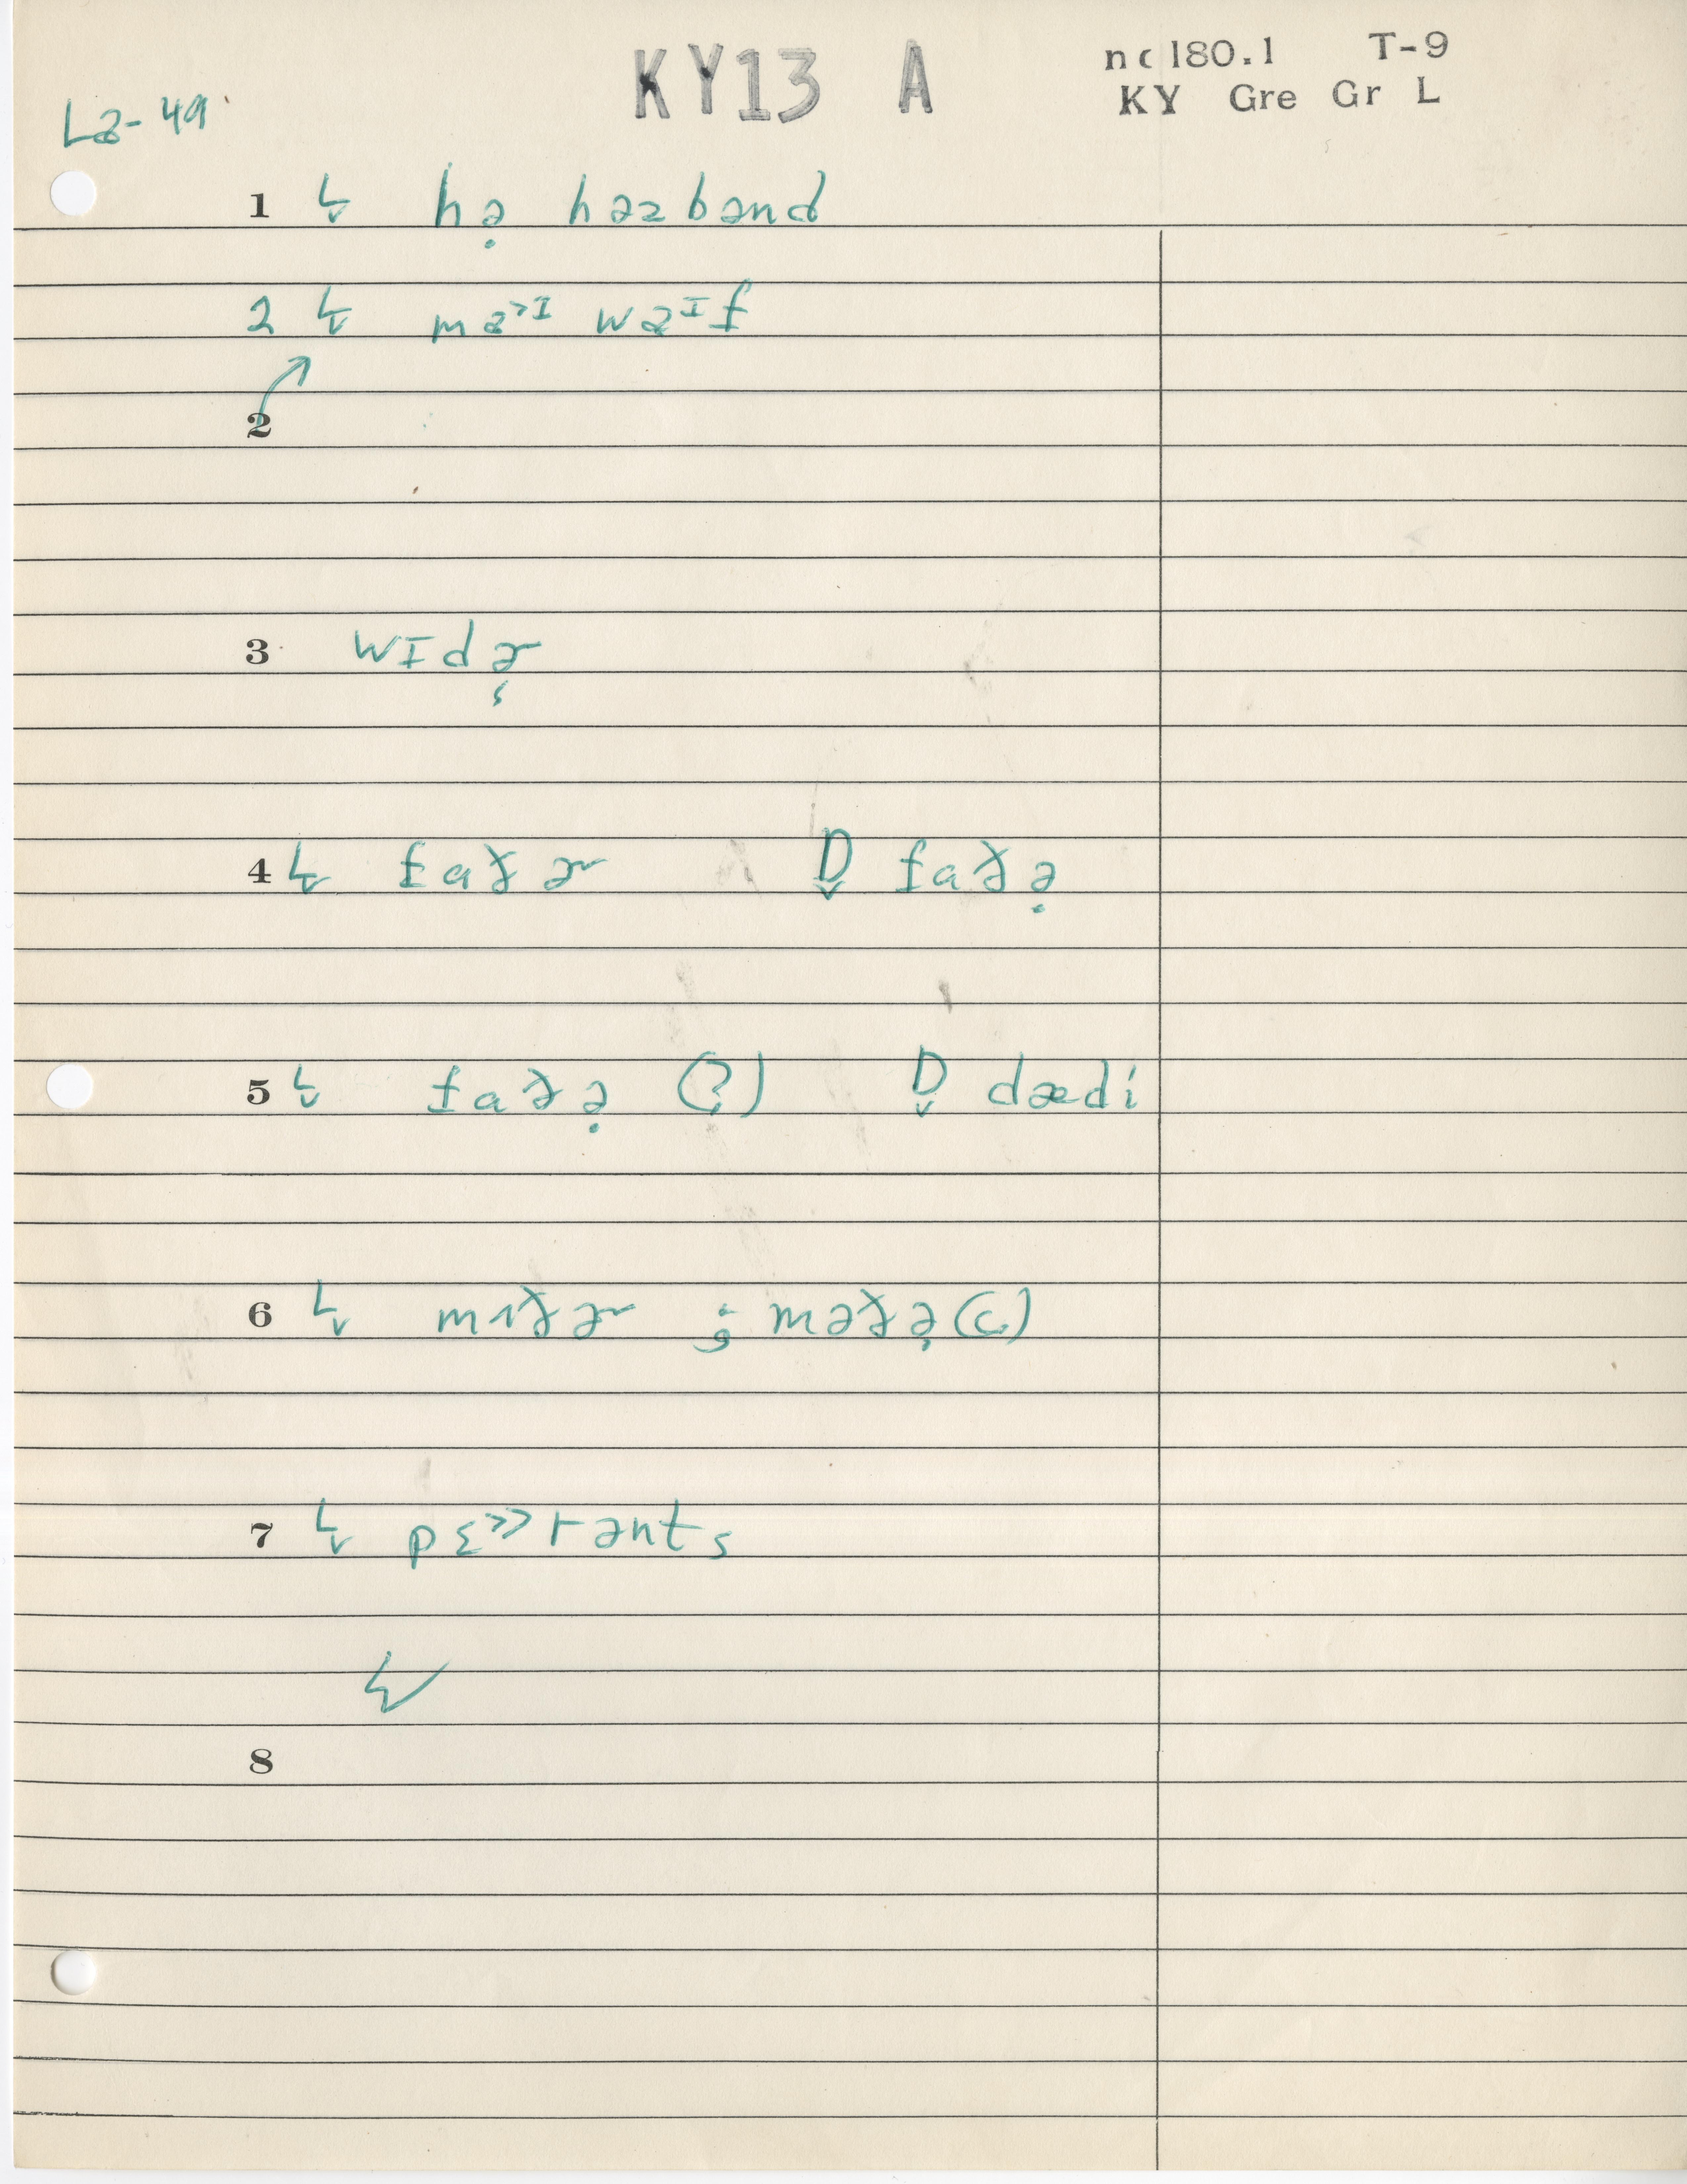 KY13 A
nc 180.1 T-9
KY Gre Gr L
La-49
1 hə̣ həzbənd
2 mə˃ɪ wəɪf
2
3 wɪdɚ
4 faðɚ D faðə̣
5 faðə̣ (?) D dædi
6 mʌðɚ ; məðə̣ (c)
7 pɛ˃˃rənts
8